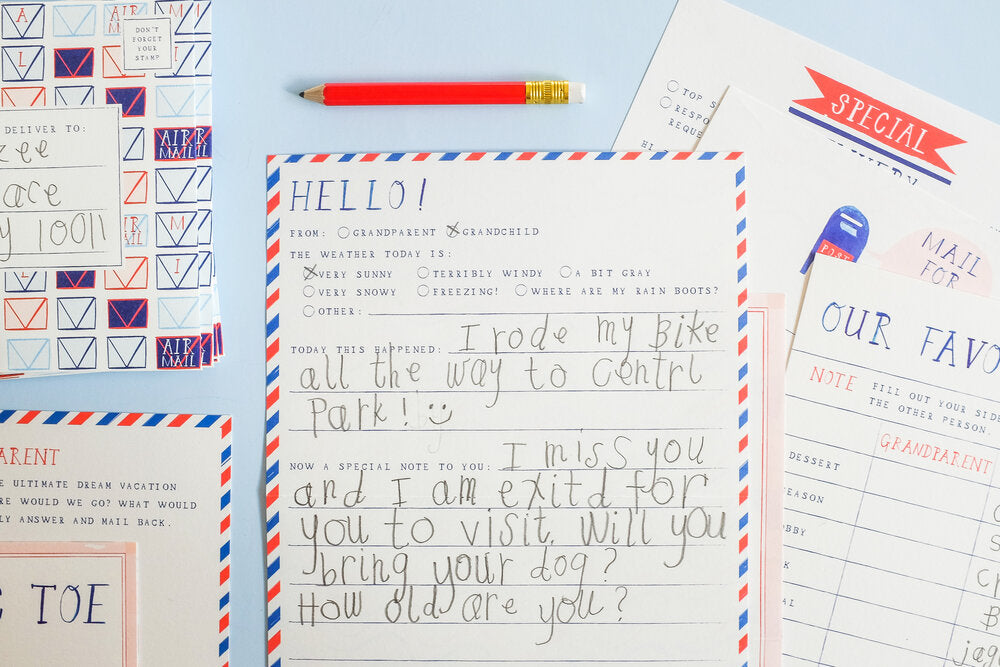 A
AIR
MAIL
M
DON'T
FORGET
YOUR
STAMP
L
DELIVER TO:
AIR
MAIL
ace
10011
AIR
MAIL
M
I
AIR
MAIL
ULTIMATE DREAM VACATION
WOULD WE GO? WHAT WOULD
ANSWER AND MAIL BACK.
TOE
HELLO!
FROM: GRANDPARENT GRANDCHILD
THE WEATHER TODAY IS:
VERY SUNNY TERRIBLY WINDY A BIT GRAY
VERY SNOWY FREEZING! WHERE ARE MY RAIN BOOTS?
OTHER:
TODAY THIS HAPPENED: I rode my Bike
all the way to Centrl
Park!
NOW A SPECIAL NOTE TO YOU: I miss you
and I am exitd for
you to visit. Will you
bring your dog?
How old are you?
TOP
SPECIAL
MAIL
FOR
POST
OUR FAVO
NOTE FILL OUT YOUR SIDE
THE OTHER PERSON.
GRANDPARENT
DESSERT